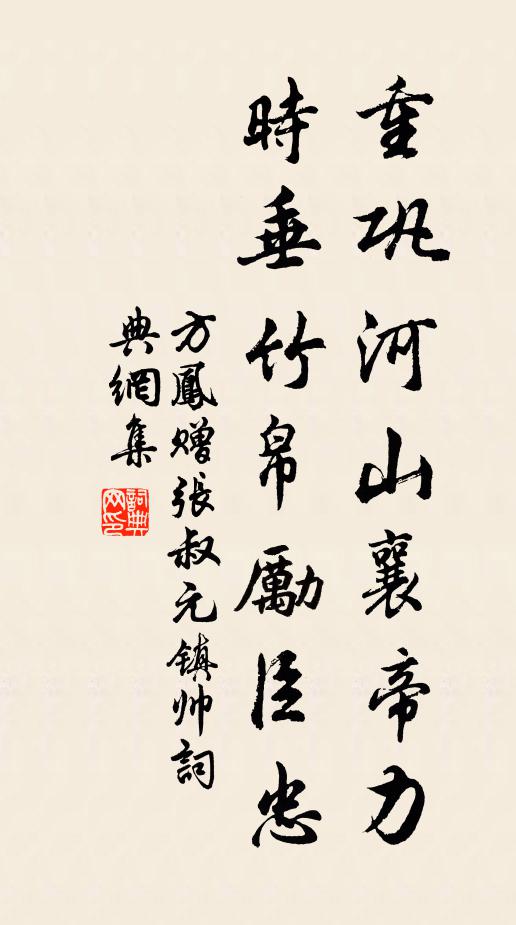 重巩河山襄帝力
時垂竹帛勵臣忠
方鳳赠張叔元镇帅詞
典網集
詞典
网印